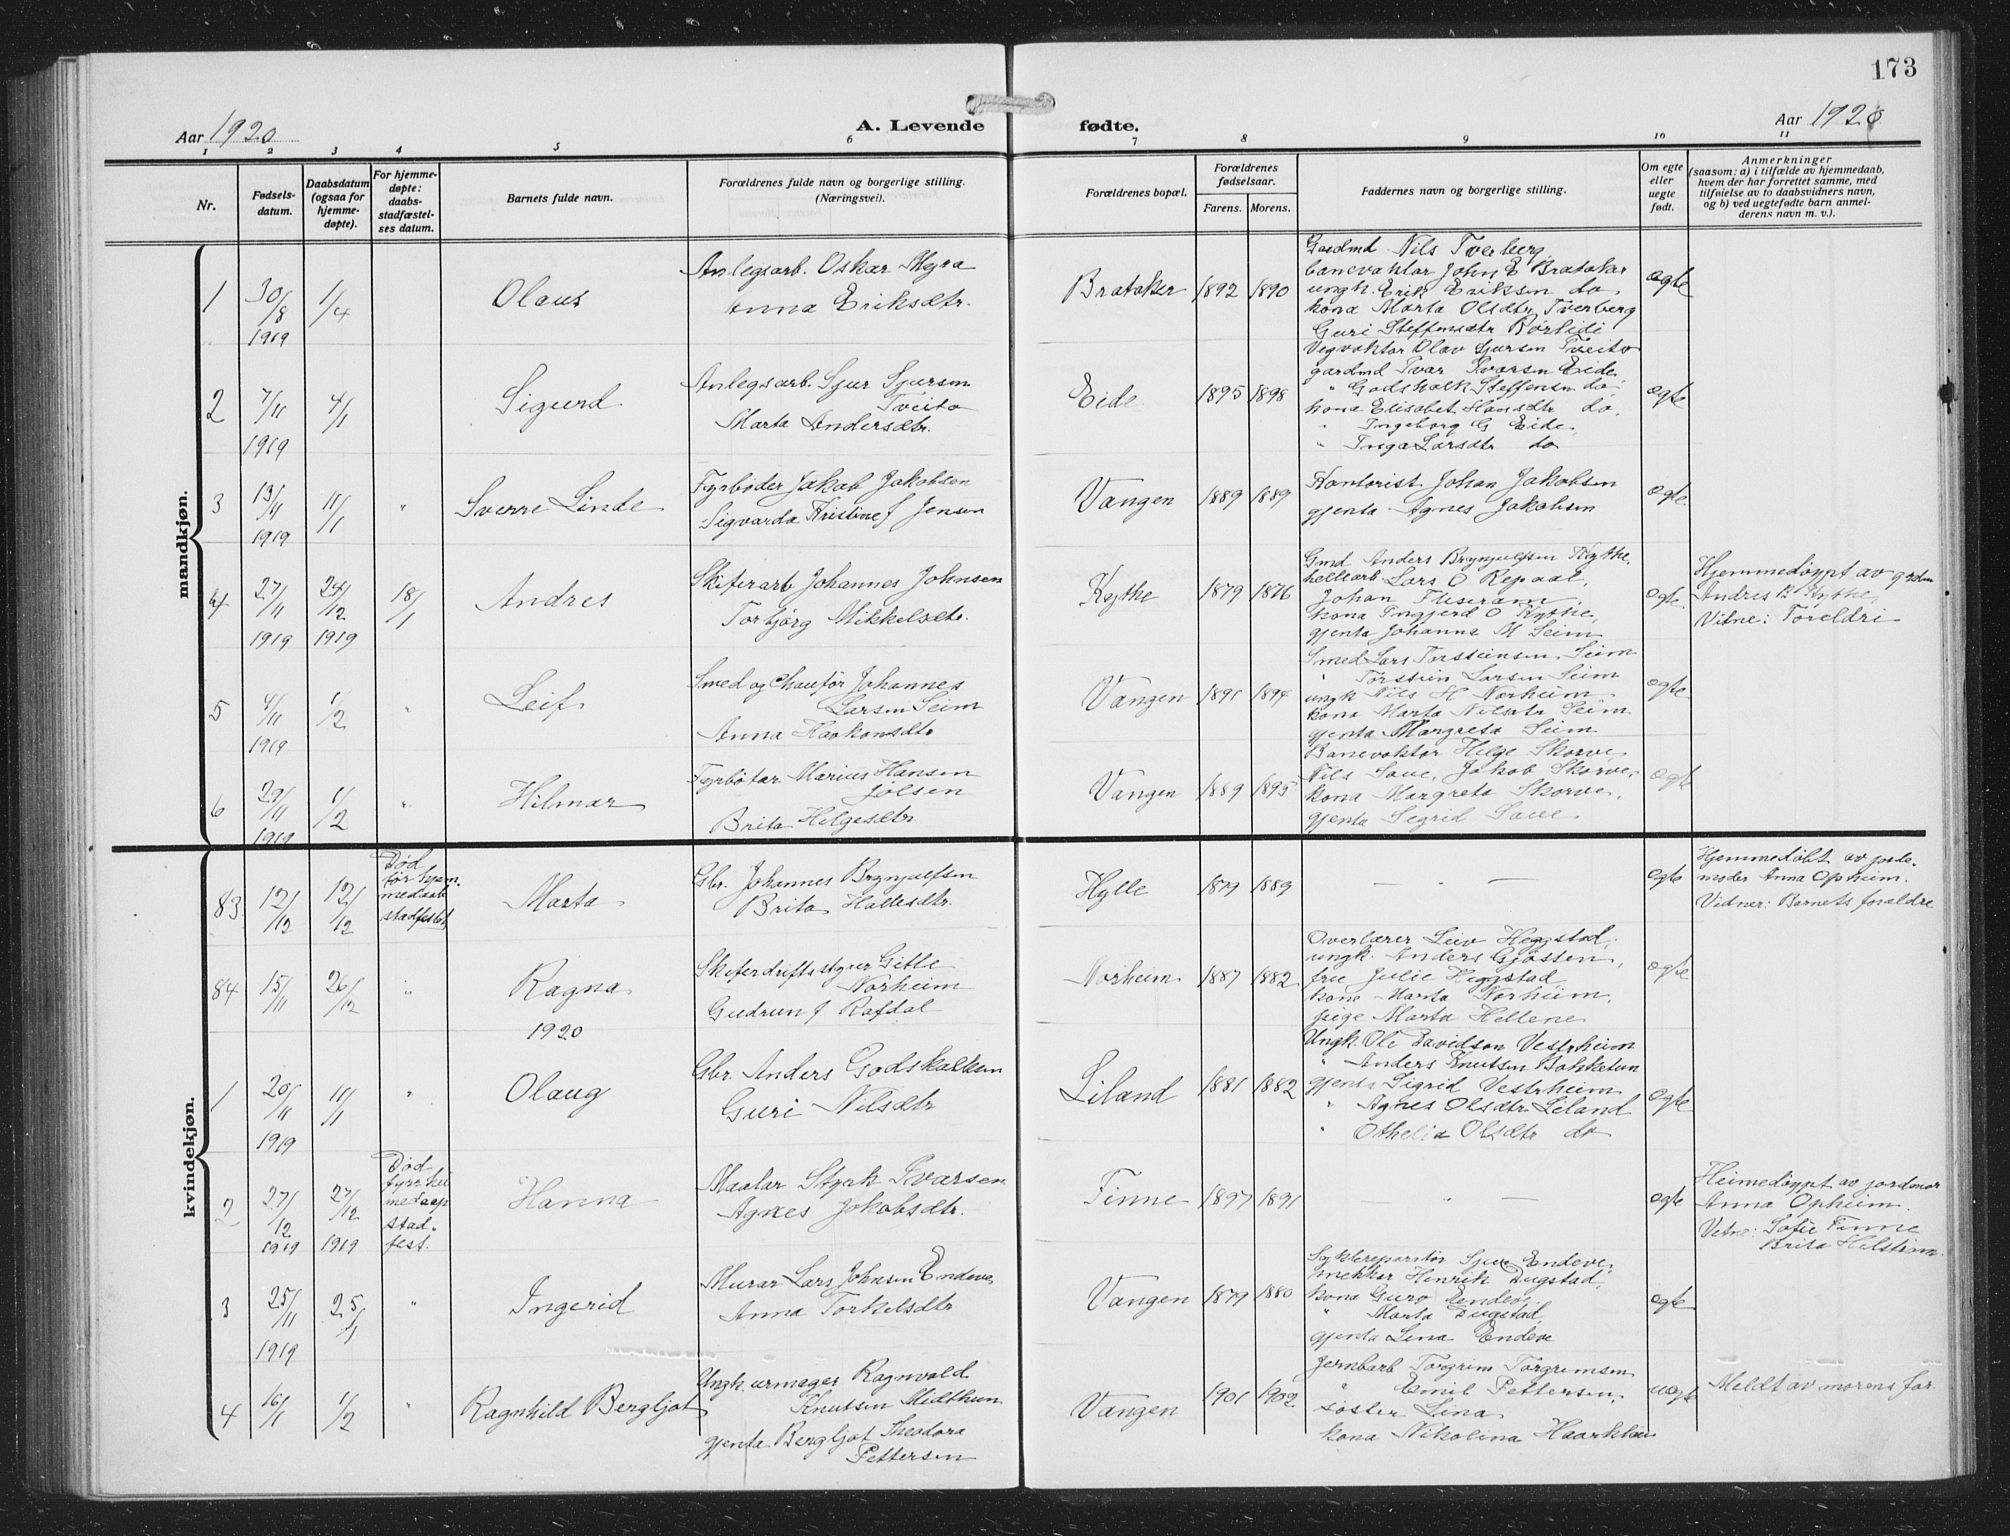 173
Aar 1920
A. Levende fødte.
Aar 1920
1 2 3 4 5 6 7 8 9 10 11
Nr.
Fødsels-
datum.
Daabsdatum
(ogsaa for
hjemme-
døpte).
For hjemme-
døpte:
daabs-
stadfæstel-
ses datum.
Barnets fulde navn.
Forældrenes fulde navn og borgerlige stilling.
(Næringsvei).
Forældrenes bopæl.
Forældrenes
fødselsaar.
Farens. Morens.
Faddernes navn og borgerlige stilling.
Om egte
eller
uegte
født.
Anmerkninger
(saasom: a) i tilfælde av hjemmedaab,
hvem der har forrettet samme, med
tilføielse av to daabsvidners navn,
og b) ved uegtefødte barn anmel-
derens navn m. v.).
mandkjøn.
1
30/8
1919
1/4
Olaus
Anlegsarb. Oskar Myra
Anna Eriksdtr.
Brataker 1892 1890
Gardmd Nils Tverberg,
banevaktar John E Brataker
ungk. Erik Eriksen do
kona Marta Olsdtr Tverberg
Guri Steffensdtr Rørlidi
egte
2
7/11
1919
4/1
Sigurd
Anlegsarb. Sjur Sjursen
Tveito
Marta Andersdtr.
Eide 1895 1898
Vegvaktar Olav Sjursen Tveito
gardmd Ivar Ivarsen Eide,
" Godskalk Steffensen do,
kona Elisabet Hansdtr do,
" Ingeborg G Eide,
" Inga Larsdtr do
egte
3
13/11
1919
11/1
"
Sverre Linde
Fyrbøder Jakob Jakobsen
Sigvarda Kristine f Jensen
Vangen 1889 1889
Kontorist Johan Jakobsen
gjenta Agnes Jakobsen
egte
4
27/11
1919
24/12
1919
18/1
Andres
Skiferarb Johannes Johnsen
Torbjørg Mikkelsdtr.
Kythe 1879 1876
Gmd Anders Brynjulfsen Kythe,
hellearb Lars O Repaal,
Johan Fliseram,
kona Ingjerd O Kythe,
gjenta Johanna M Seim
egte
Hjemmedøypt av gardm
Andres B Kythe,
Vitne: Foreldri
5
4/11
1919
1/2
"
Leif
Smed og Chaufør Johannes
Larsen Seim
Anna Haakonsdtr
Vangen 1891 1894
Smed Lars Torsteinsen Seim
" Torstein Larsen Seim
ungk Nils H Norheim
kona Marta Nilsdtr Seim
gjenta Margreta Seim
egte
6
29/11
1919
1/2
"
Hilmar
Fyrbøtar Marius Hansen
Jølsen
Brita Helgesdtr
Vangen 1889 1895
Banevaktar Helge Skorve,
Nils Saue, Jakob Skorve,
kona Margreta Skorve,
gjenta Sigrid Saue.
egte
kvindekjøn.
83
12/12
12/12
Død
før hjem.
medaab
stadfestet
Marta
Gbr. Johannes Brynjulfsen
Brita Hallesdtr.
Hylle 1879 1889
— " —
egte
Hjemmedøbt av jorde.
moder Anna Opheim.
Vidner: Barnets forældre
84
15/11
26/12
"
Ragna
Skiferdriftsstyrer Gitle
Norheim
Gudrun f Rafdal
Norheim 1887 1882
Overlærer Leiv Heggstad,
ungk. Anders Gjøsten,
frue Julie Heggstad
kone Marta Norheim,
pige Marta Hellene
egte
1920
1
20/11
1919
11/1
"
Olaug
Gbr. Anders Godskalksen
Guri Nilsdtr
Liland 1881 1882
Ungk. Ole Davidson Vestrheim
" Anders Knutsen Bokketun
gjenta Sigrid Vestrheim
" Agnes Olsdtr Liland
" Othelia Olsdtr do
egte
2
27/12
1919
27/12
1919
Død
fyrr hei
medaap
stad-
fest.
Hanna
Maalar Styrk Ivarsen
Agnes Jakobsdtr.
Finne 1897 1891
— " —
egte
Heimedøypt av jordmor
Anna Opheim.
Vitne: Sofie Finne
3
25/11
1919
25/1
"
Ingerid
Murar Lars Johnsen Endeve
Anna Torkelsdtr
Vangen 1879 1880
Sykkelreparatør Sjur Endeve,
snekkar Henrik Dugstad,
kona Guro Endeve
" Marta Dugstad,
gjenta Lina Endeve
egte
4
16/1
1/2
"
Ragnhild Bergljot
Ungk. urmager Ragnvald
Knutsen Midthun
gjenta Bergljot Theodora
Pettersen
Vangen 1901 1902
Jernbarb Torgrim Torgrimsen
" Emil Pettersen,
søster Lina
kona Nikolina
uegte
Meldt av morens far.